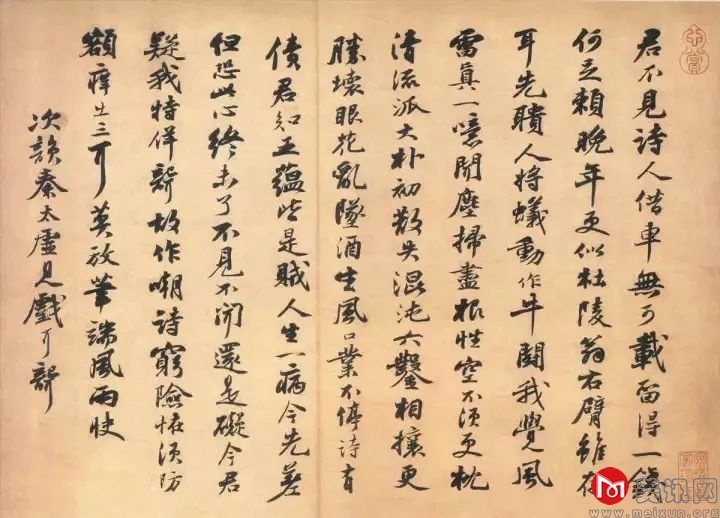 君不見詩人借車無可載留得一錢
何足賴晚年更似杜陵翁右臂雖存
耳先聵人將蟻動作牛鬭我覺風
雷真一噫聞塵掃盡根性空不須更枕
清流派大朴初散失混沌六鑿相攘更
勝壞眼花亂墜酒生風口業不停詩有
債君知五蘊皆是賊人生一病今先差
但恐此心終未了不見不聞還是礙今君
疑我特佯聾故作嘲詩窮險怪須防
額癢出三耳莫放筆端風雨快
次韻秦太虛見戲耳聾
美讯网
www.meixun.org